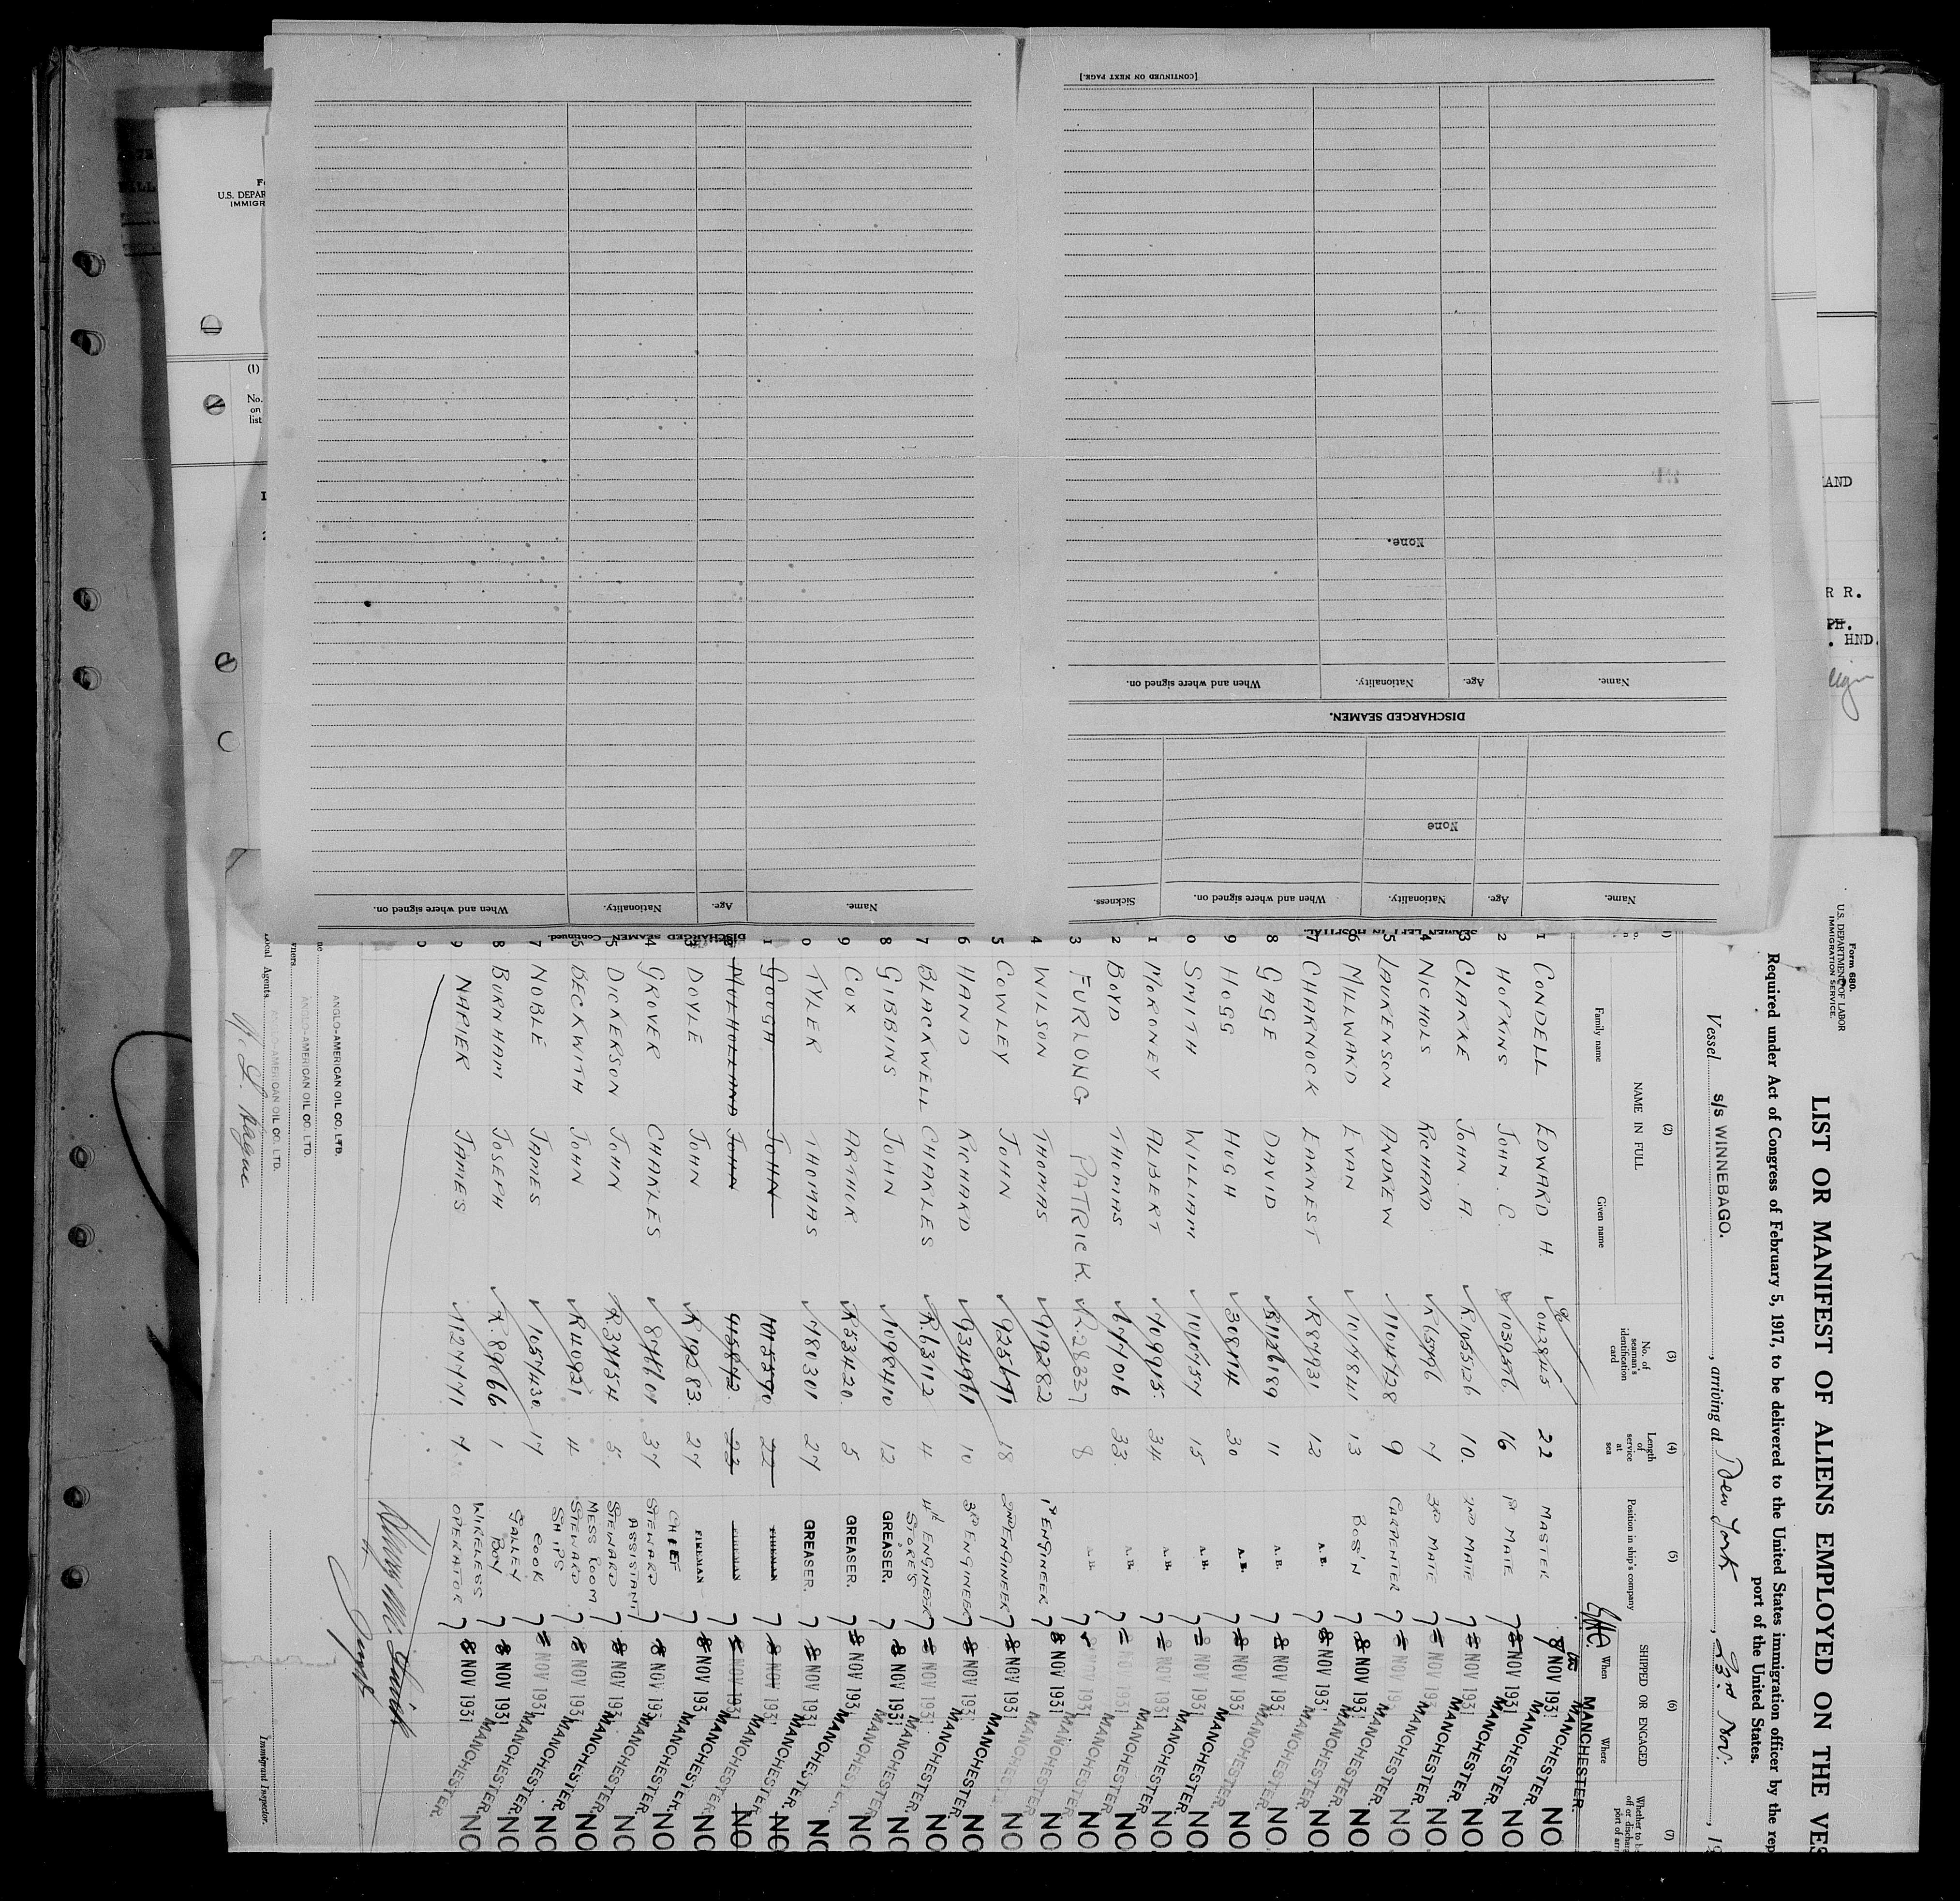 Form 680.
U.S. DEPARTMENT OF LABOR
IMMIGRATION SERVICE.
LIST OR MANIFEST OF ALIENS EMPLOYED ON THE VES
Required under Act of Congress of February 5, 1917, to be delivered to the United States immigration officer by the rep
port of the United States.
Vessel s/s WINNEBAGO. , arriving at New York , 23rd Nov. , 19
(2) (3) (4) (5) (6) (7)
NAME IN FULL
Family name Given name
No. of seaman's identification card
Length of service at sea
Position in ship's company
SHIPPED OR ENGAGED
When Where
Whether to b
off or dischar
port of arr
MANCHESTER.
1 CONDELL EDWARD H. 043845 22 MASTER 7 NOV 193 MANCHESTER. NO
2 HOPKINS JOHN. C. 16 1st MATE 7 8 NOV 1931 MANCHESTER. NO
3 CLARKE JOHN. A R.105526 10. 2ND MATE 7 8 NOV 193 MANCHESTER. NO
4 NICHOLS RICHARD 7 3RD MATE 7 8 NOV 193 MANCHESTER. NO
5 LAURENSON ANDREW 1104728 9 CARPENTER 7 8 NOV 1931 MANCHESTER. NO
6 MILLWARD EVAN 1017841 13 BOS'N 7 8 NOV 193 MANCHESTER. NO
7 CHARNOCK EARNEST R87931 12 A.B. 7 8 NOV 193 MANCHESTER. NO
8 GAGE DAVID R1126189 11 A.B. 7 8 NOV 193 MANCHESTER. NO
9 HOGG HUGH 30 A.B. 7 8 NOV 193 MANCHESTER. NO
0 SMITH WILLIAM 1010757 15 A.B. 7 8 NOV 193 MANCHESTER. NO
1 MORONEY ALBERT 709915. 34 A.B. 7 8 NOV 193 MANCHESTER. NO
2 BOYD THOMAS 677016 33. A.B. 7 8 NOV 1931 MANCHESTER. NO
3 FURLONG PATRICK. R.28337 8 A.B. 7 8 NOV 1931 MANCHESTER. NO
4 WILSON THOMAS 919282 1st ENGINEER 7 8 NOV 1931 MANCHESTER. NO
5 COWLEY JOHN 925671 18 2ND ENGINEER 7 8 NOV 1931 MANCHESTER. NO
6 HAND RICHARD 934961 10 3RD ENGINEER 7 8 NOV 193 MANCHESTER. NO
7 BLACKWELL CHARLES R.63112 4 4th ENGINEER 7 8 NOV 193 MANCHESTER. NO
8 GIBBINS JOHN 1098410 12 STORES & GREASER. 7 8 NOV 1931 MANCHESTER. NO
9 COX ARTHUR R53420. 5 GREASER. 7 8 NOV 193 MANCHESTER. NO
0 TYLER THOMAS 780301 27 GREASER. 7 8 NOV 1931 MANCHESTER. NO
1 GOUGH JOHN 1015590 22 FIREMAN 7 8 NOV 1931 MANCHESTER. NO
MULHOLLAND JOHN 915842. 23 FIREMAN 7 8 NOV 1931 MANCHESTER. NO
DOYLE JOHN R 19283. 27 FIREMAN 7 8 NOV 193 MANCHESTER. NO
4 GROVER CHARLES 874601 37 CHIEF STEWARD 7 8 NOV 193 MANCHESTER. NO
5 DICKERSON JOHN R.371541 5. ASSISTANT STEWARD 7 8 NOV 1931 MANCHESTER. NO
6 BECKWITH JOHN R40921 4 MESS ROOM STEWARD. 7 8 NOV 1931 MANCHESTER. NO
7 NOBLE JAMES 1057430. 17 SHIPS COOK 7 8 NOV 1931 MANCHESTER. NO
8 BURNHAM JOSEPH R.89766 1 GALLEY BOY 7 8 NOV 1931 MANCHESTER. NO
9 NAPIER JAMES 1127771 7. WIRELESS OPERATOR 7 8 NOV 1931 MANCHESTER. NO
0
ANGLO-AMERICAN OIL CO. LTD.
wners ANGLO-AMERICAN OIL CO. LTD.
Local Agents ANGLO-AMERICAN OIL CO. LTD.
Immigrant Inspector.
SEAMEN LEFT IN HOSPITAL.
Name. Age. Nationality. When and where signed on. Sickness.
None
DISCHARGED SEAMEN.
Name. Age. Nationality. When and where signed on.
None.
[CONTINUED ON NEXT PAGE.]
DISCHARGED SEAMEN—Continued
Name. Age. Nationality. When and where signed on.
U.S. DEPAR
IMMIGR
(1)
No.
on
list
AND
R R.
PH.
. HND.